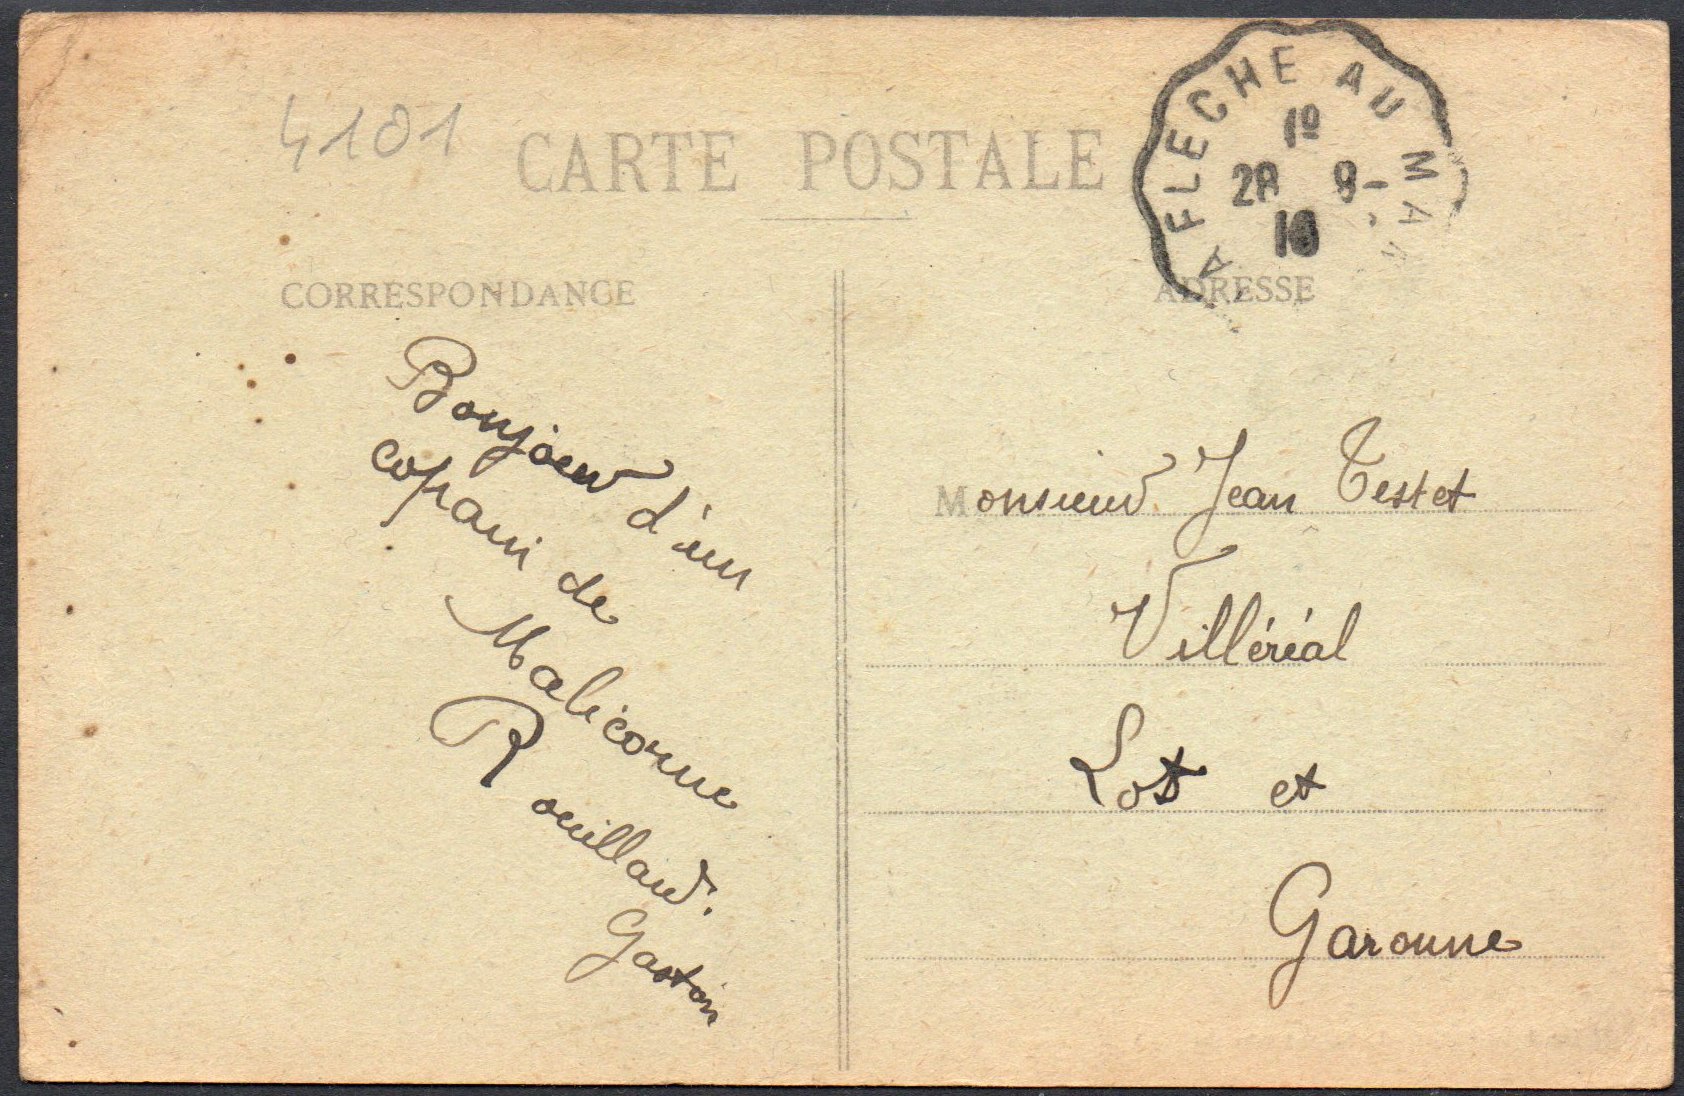 4101
CARTE POSTALE
A FLECHE AU MA
1º
28 9-
16
CORRESPONDANCE
ADRESSE
Bonjour d'un
copain de
Malicorne
Rouillard.
Gaston
Monsieur Jean Testet
Villéréal
Lot et
Garonne